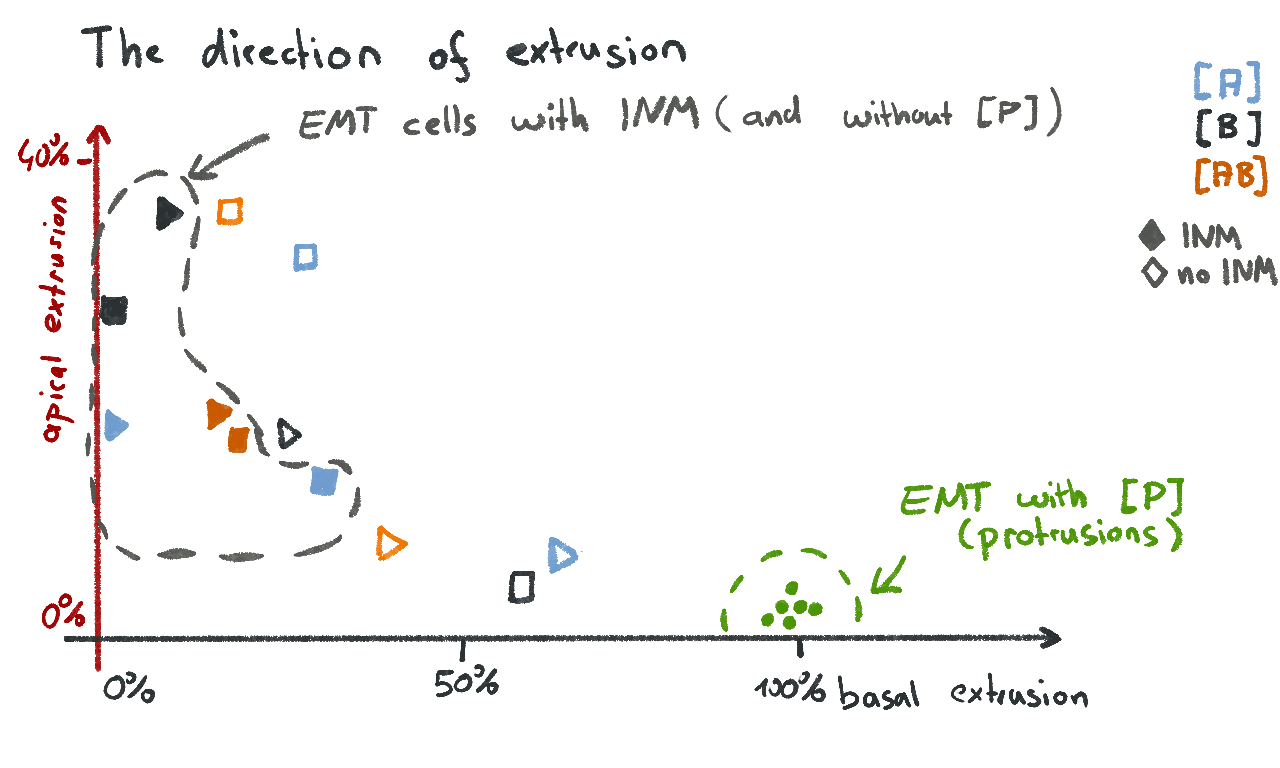 The direction of extrusion
EMT cells with INM (and without [P])
[A]
[B]
[AB]
INM
no INM
40%
apical extrusion
0%
EMT with [P]
(protrusions)
0%
50%
100%
basal extrusion